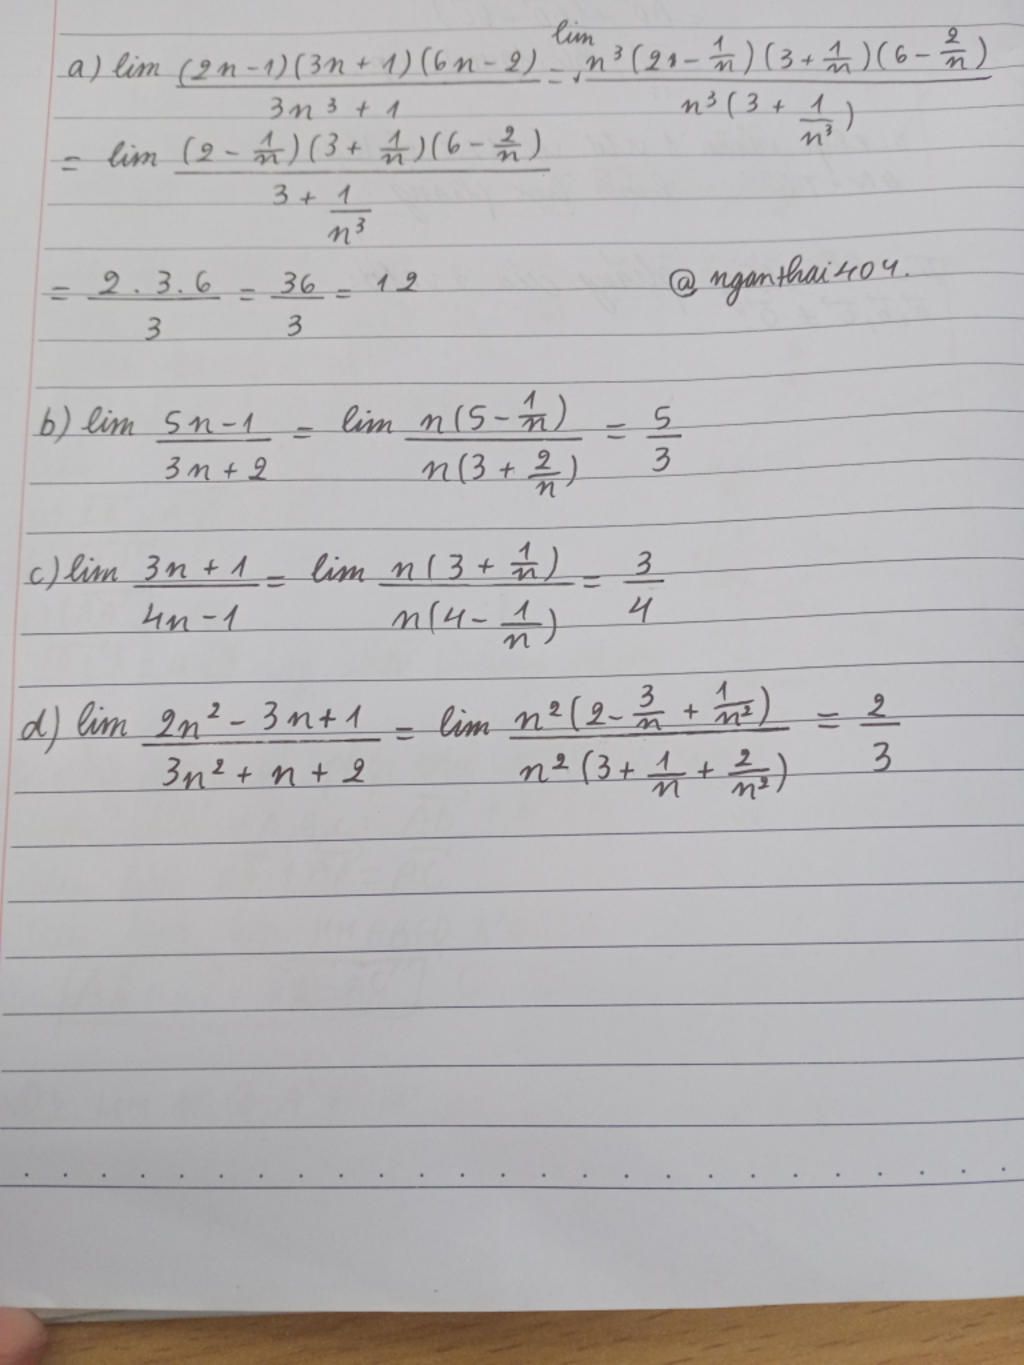 a) lim (2n-1)(3n+1)(6n-2) / 3n³ + 1 = lim n³(2 - 1/n)(3 + 1/n)(6 - 2/n) / n³(3 + 1/n³)
= lim (2 - 1/n)(3 + 1/n)(6 - 2/n) / 3 + 1/n³
= 2.3.6 / 3 = 36/3 = 12 @nganthai404.
b) lim 5n-1 / 3n+2 = lim n(5 - 1/n) / n(3 + 2/n) = 5/3
c) lim 3n+1 / 4n-1 = lim n(3 + 1/n) / n(4 - 1/n) = 3/4
d) lim 2n² - 3n+1 / 3n² + n + 2 = lim n²(2 - 3/n + 1/n²) / n²(3 + 1/n + 2/n²) = 2/3